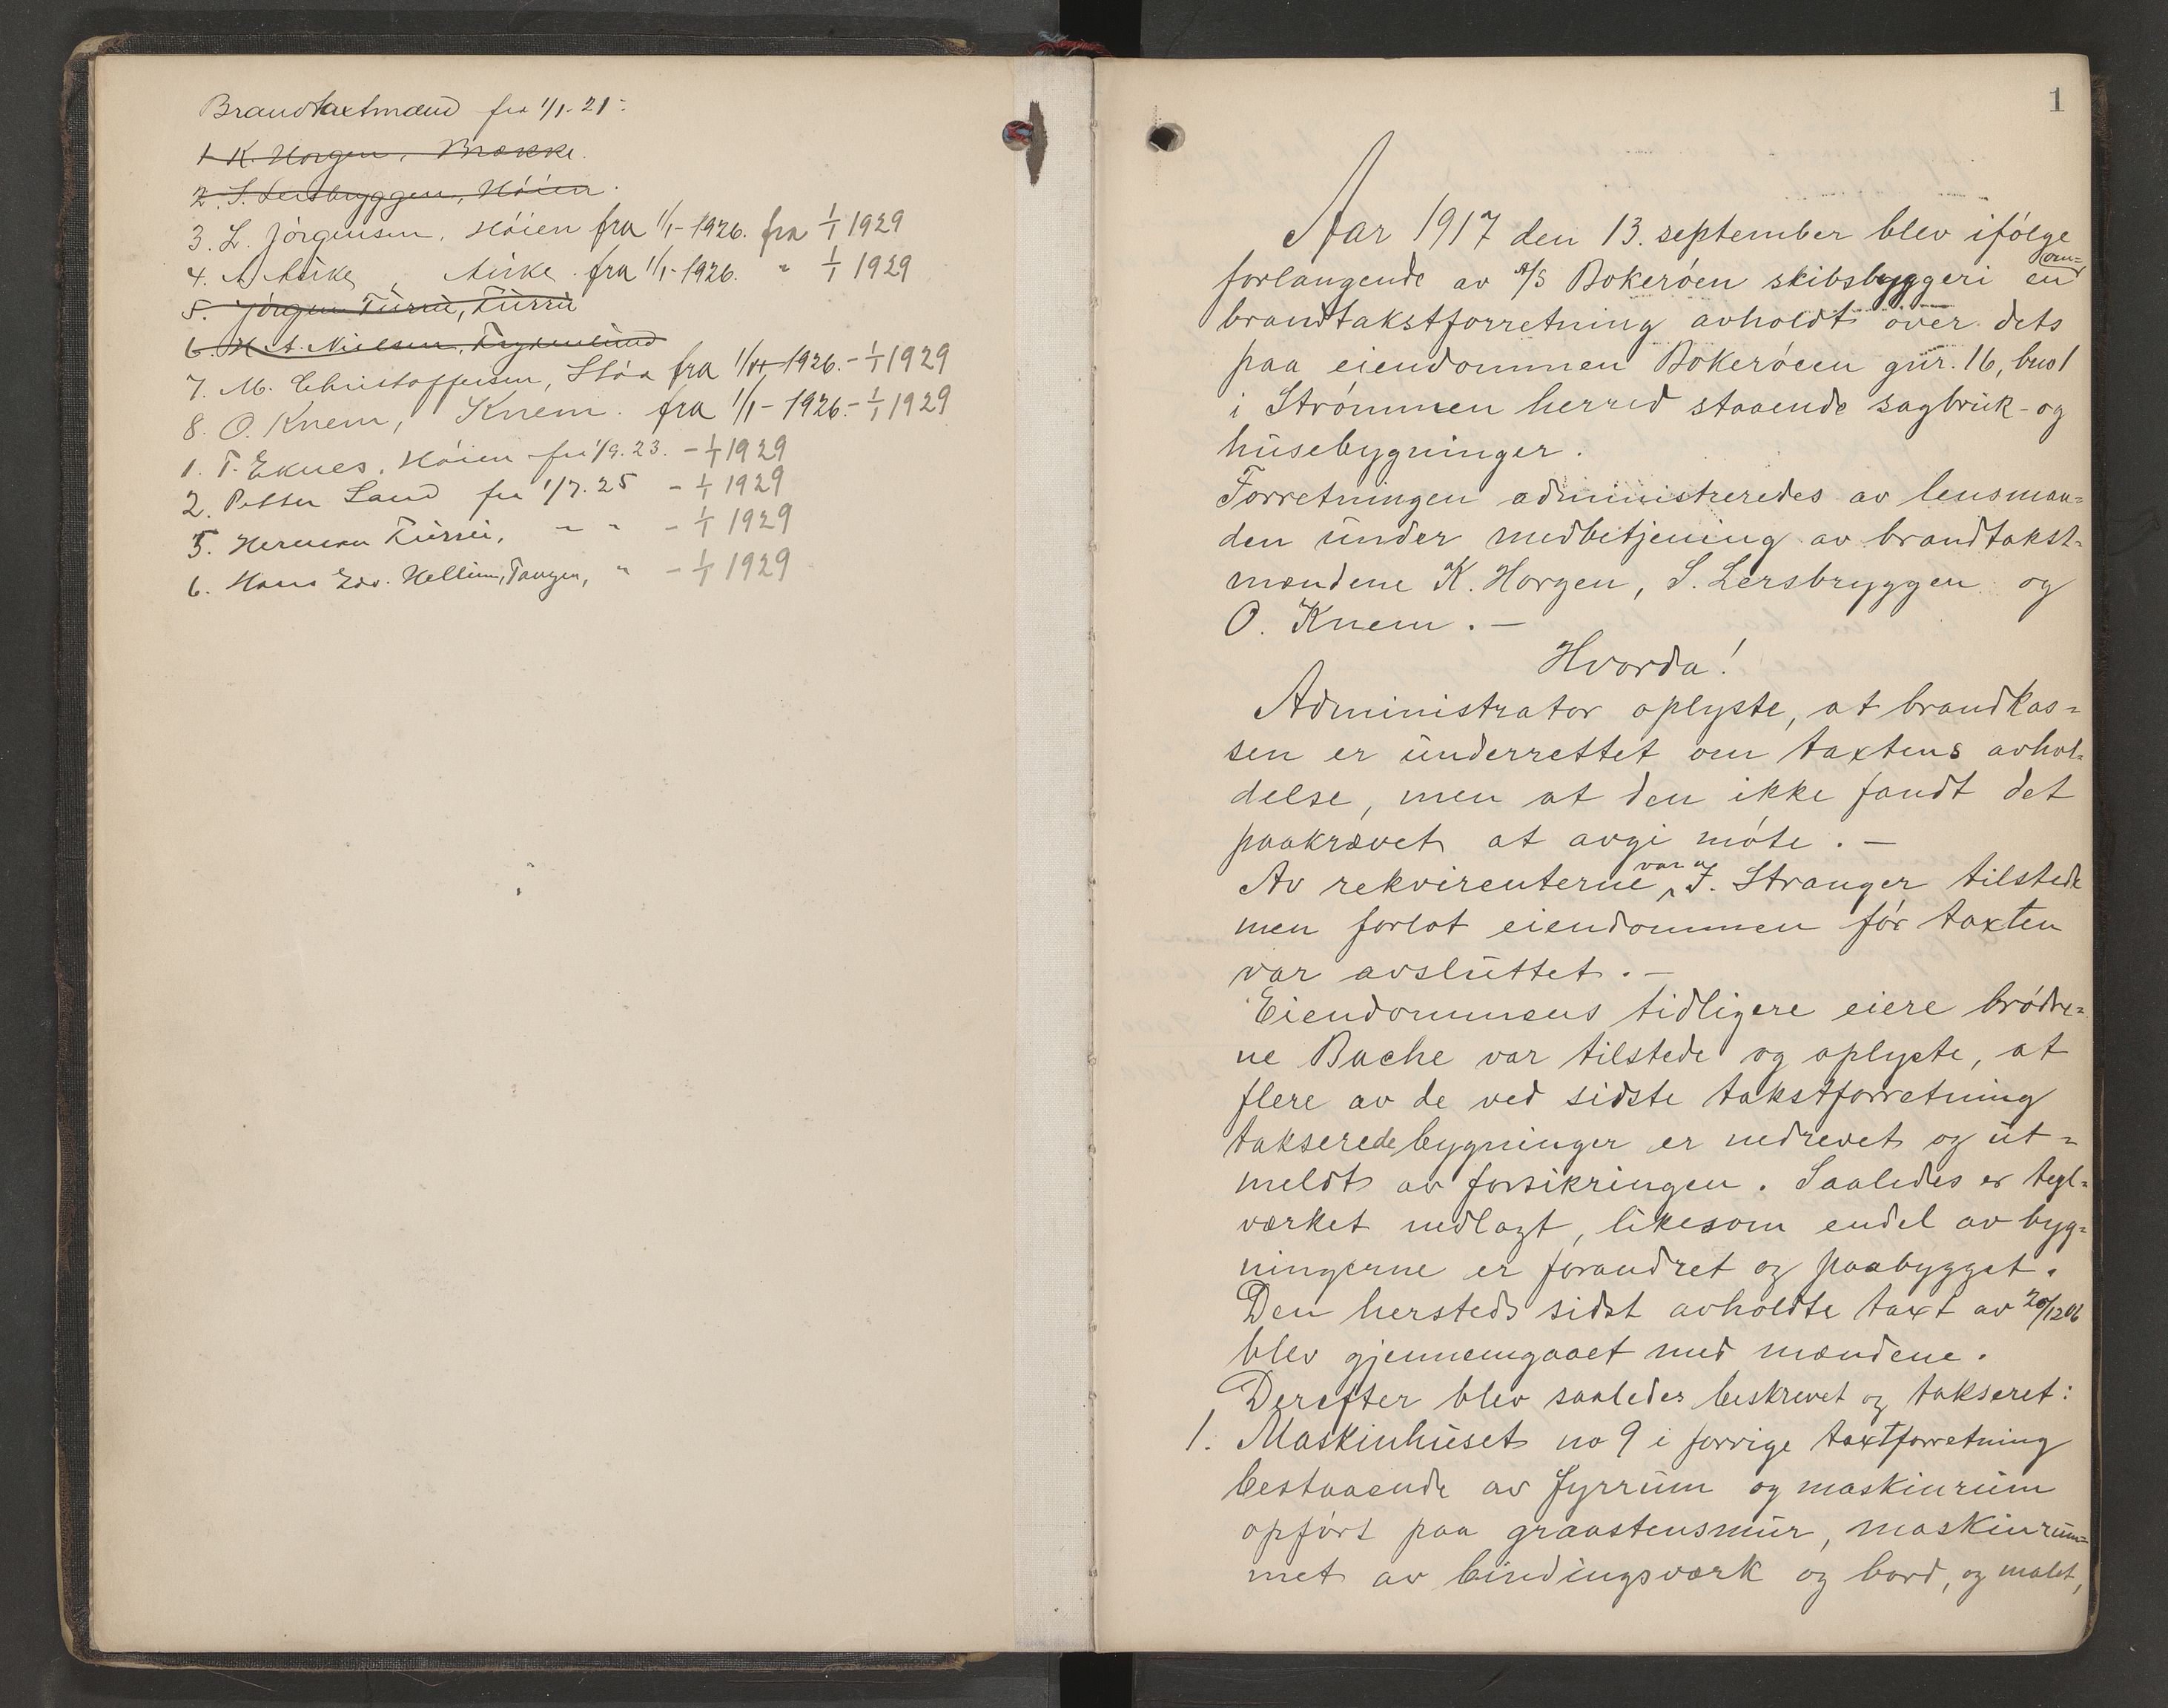 Brandtaxtmænd fra 1/1. 21:
1 K. Horgen, Brække.
2. S. Lersbryggen, Höien.
3. L. Jörgensen, Höien fra 1/1-1926. fra 1/1 1929
4. A. Aiske, Aiske. fra 1/1-1926. " 1/1 1929
5. Jörgen
6. H. A. Nielsen,
7. M. Christoffersen, Stöa fra 1926. - 1/1 1929
8. O. Knem, Knem. fra 1/1-1926. - 1/1 1929
1. T. Eknes, Höien fra 1/9. 23. - 1/1 1929
2. Petter Sand fra 1/7. 25 - 1/1 1929
5. Herman " " - 1/1 1929
6. Hans Edv. Hellum, Tangen, " - 1/1 1929
1
Aar 1917 den 13. september blev ifölge
forlangende av A/S Bokeröen skibsbyggeri en om=
brandtakstforretning avholdt over dets
paa eiendommen Bokeröen gnr. 16, bno 1
i Strömmen herred staaende sagbruk- og
husebygninger.
Forretningen administreredes av lensman=
den under medbetjening av brandtakst=
mændene K. Horgen, S. Lersbryggen og
O. Knem. —
Hvorda!
Administrator oplyste, at brandkas=
sen er underrettet om taxtens avhol=
delse, men at den ikke fandt det
paakrævet at avgi möte. —
Av rekvirenterne var J. Stranger tilstede
men forlot eiendommen för taxten
var avsluttet. —
Eiendommens tidligere eiere brödre=
ne Bache var tilstede og oplyste, at
flere av de ved sidste takstforretning
takserede bygninger er nedrevet og ut=
meldt av forsikringen. Saaledes er tegl=
verket nedlagt, likesom endel av byg=
ningerne er forandret og paabygget.
Den hersteds sidst avholdte taxt av 20/12 06
blev gjennemgaaet med mændene.
Derefter blev saaledes beskrevet og takseret:
1. Maskinhuset no 9 i forrige taxtforretning
bestaaende av fyrrum og maskinrum
opfört paa graastensmur, maskinrum=
met av bindingsværk og bord, og malet,